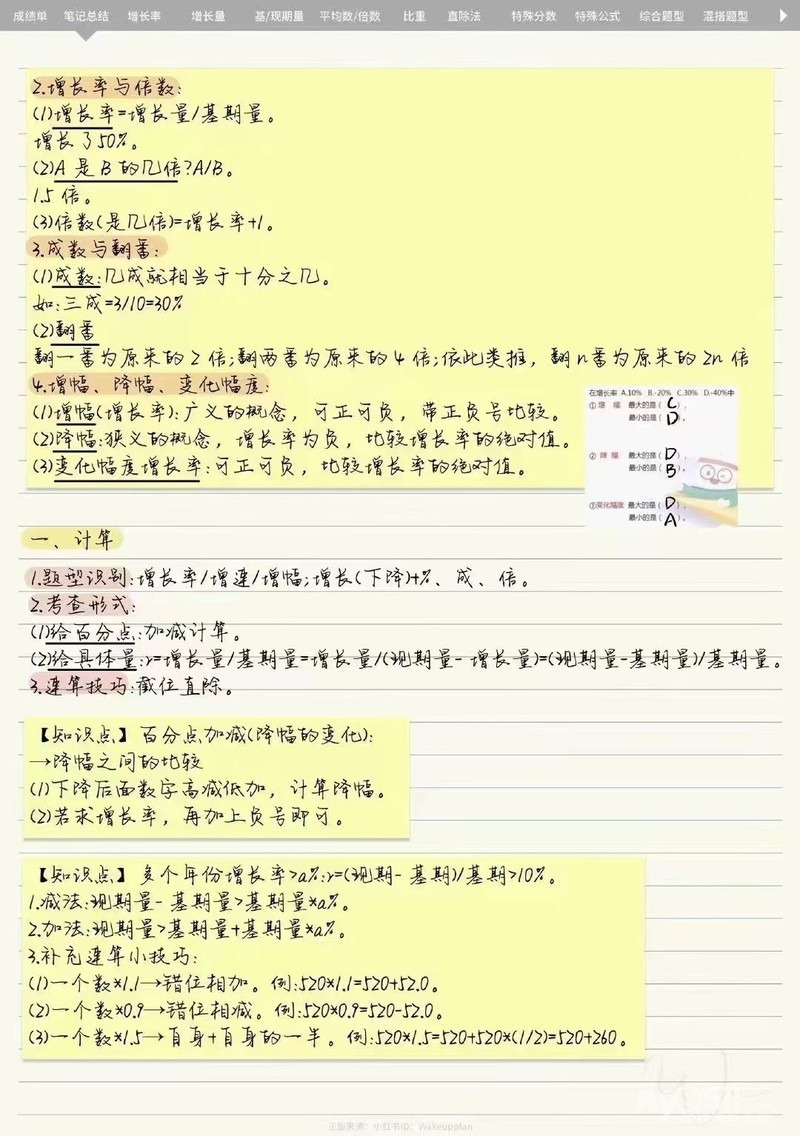 成绩单 笔记总结 增长率 增长量 基/现期量 平均数/倍数 比重 直除法 特殊分数 特殊公式 综合题型 混搭题型
2.增长率与倍数:
(1)增长率=增长量/基期量。
增长了50%。
(2)A 是 B 的几倍?A/B。
1.5 倍。
(3)倍数(是几倍)=增长率+1。
3.成数与翻番:
(1)成数:几成就相当于十分之几。
如:三成=3/10=30%
(2)翻番
翻一番为原来的 2 倍;翻两番为原来的 4 倍;依此类推，翻 n 番为原来的 2n 倍
4.增幅、降幅、变化幅度:
(1)增幅(增长率):广义的概念，可正可负，带正负号比较。
(2)降幅:狭义的概念，增长率为负，比较增长率的绝对值。
(3)变化幅度增长率:可正可负，比较增长率的绝对值。
在增长率 A.10% B.-20% C.30% D.-40%中
①增 幅 最大的是（C）,
最小的是（D）。
②降 幅 最大的是（D）,
最小的是（B）。
③变化幅度 最大的是（D）,
最小的是（A）。
一、计算
1.题型识别:增长率/增速/增幅;增长(下降)+%、成、倍。
2.考查形式:
(1)给百分点:加减计算。
(2)给具体量:r=增长量/基期量=增长量/(现期量-增长量)=(现期量-基期量)/基期量。
3.速算技巧:截位直除。
【知识点】百分点加减(降幅的变化):
→降幅之间的比较
(1)下降后面数字高减低加，计算降幅。
(2)若求增长率，再加上负号即可。
【知识点】多个年份增长率>a%:r=(现期-基期)/基期>10%。
1.减法:现期量-基期量>基期量*a%。
2.加法:现期量>基期量+基期量*a%。
3.补充速算小技巧:
(1)一个数*1.1→错位相加。例:520*1.1=520+52.0。
(2)一个数*0.9→错位相减。例:520*0.9=520-52.0。
(3)一个数*1.5→自身+自身的一半。例:520*1.5=520+520*(1/2)=520+260。
正版来源：小红书ID：Wakeupplan